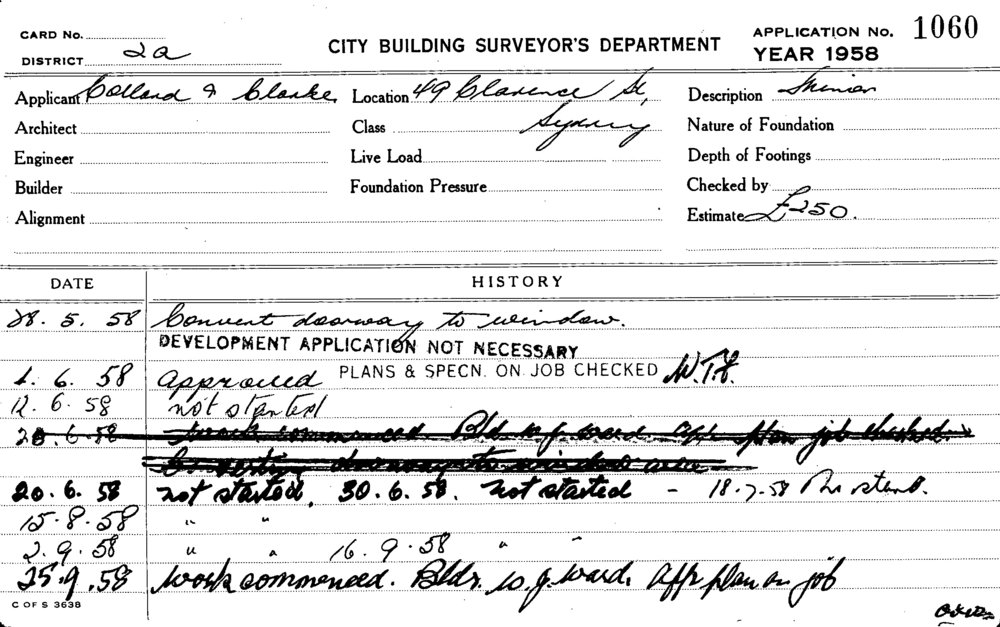 CARD No.
DISTRICT 2a
CITY BUILDING SURVEYOR'S DEPARTMENT
APPLICATION No. 1060
YEAR 1958
Applicant Collard & Clarke Location 49 Clarence St, Description
Architect Class Sydney Nature of Foundation
Engineer Live Load Depth of Footings
Builder Foundation Pressure Checked by
Alignment Estimate £250.
DATE HISTORY
28. 5. 58 Convert doorway to window.
DEVELOPMENT APPLICATION NOT NECESSARY
1. 6. 58 Approved PLANS & SPECN. ON JOB CHECKED
12. 6. 58 not started
work commenced. Bld. w.j. ward appr plan job checked.
Converting doorway to window
20. 6. 58 not started, 30. 6. 58. not started - 18.7.58
15. 8. 58 " "
2. 9. 58 " " 16. 9. 58 " "
25. 9. 58 work commenced. Bldr. w.j. ward. appr plan on job
C OF S 3638